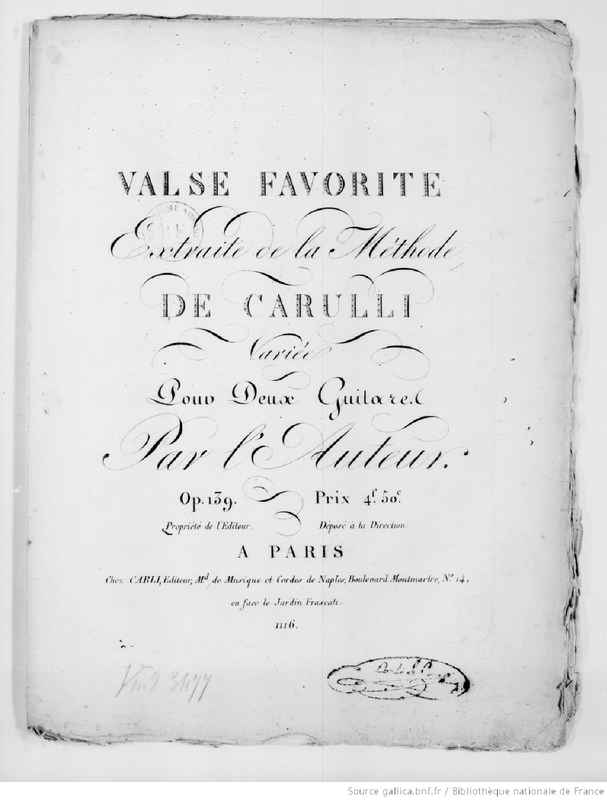 VALSE FAVORITE
Extraite de la Méthode
DE CARULLI
Variée
Pour Deux Guitares
Par l'Auteur.
Op. 139. Prix 4f. 50c.
Propriété de l'Editeur. Déposé à la Direction.
A PARIS
Chez CARLI, Editeur, Md. de Musique et Cordes de Naples, Boulevard Montmartre, No. 14,
en face le Jardin Frascati.
1116.
Vm9 3477
Source gallica.bnf.fr / Bibliothèque nationale de France